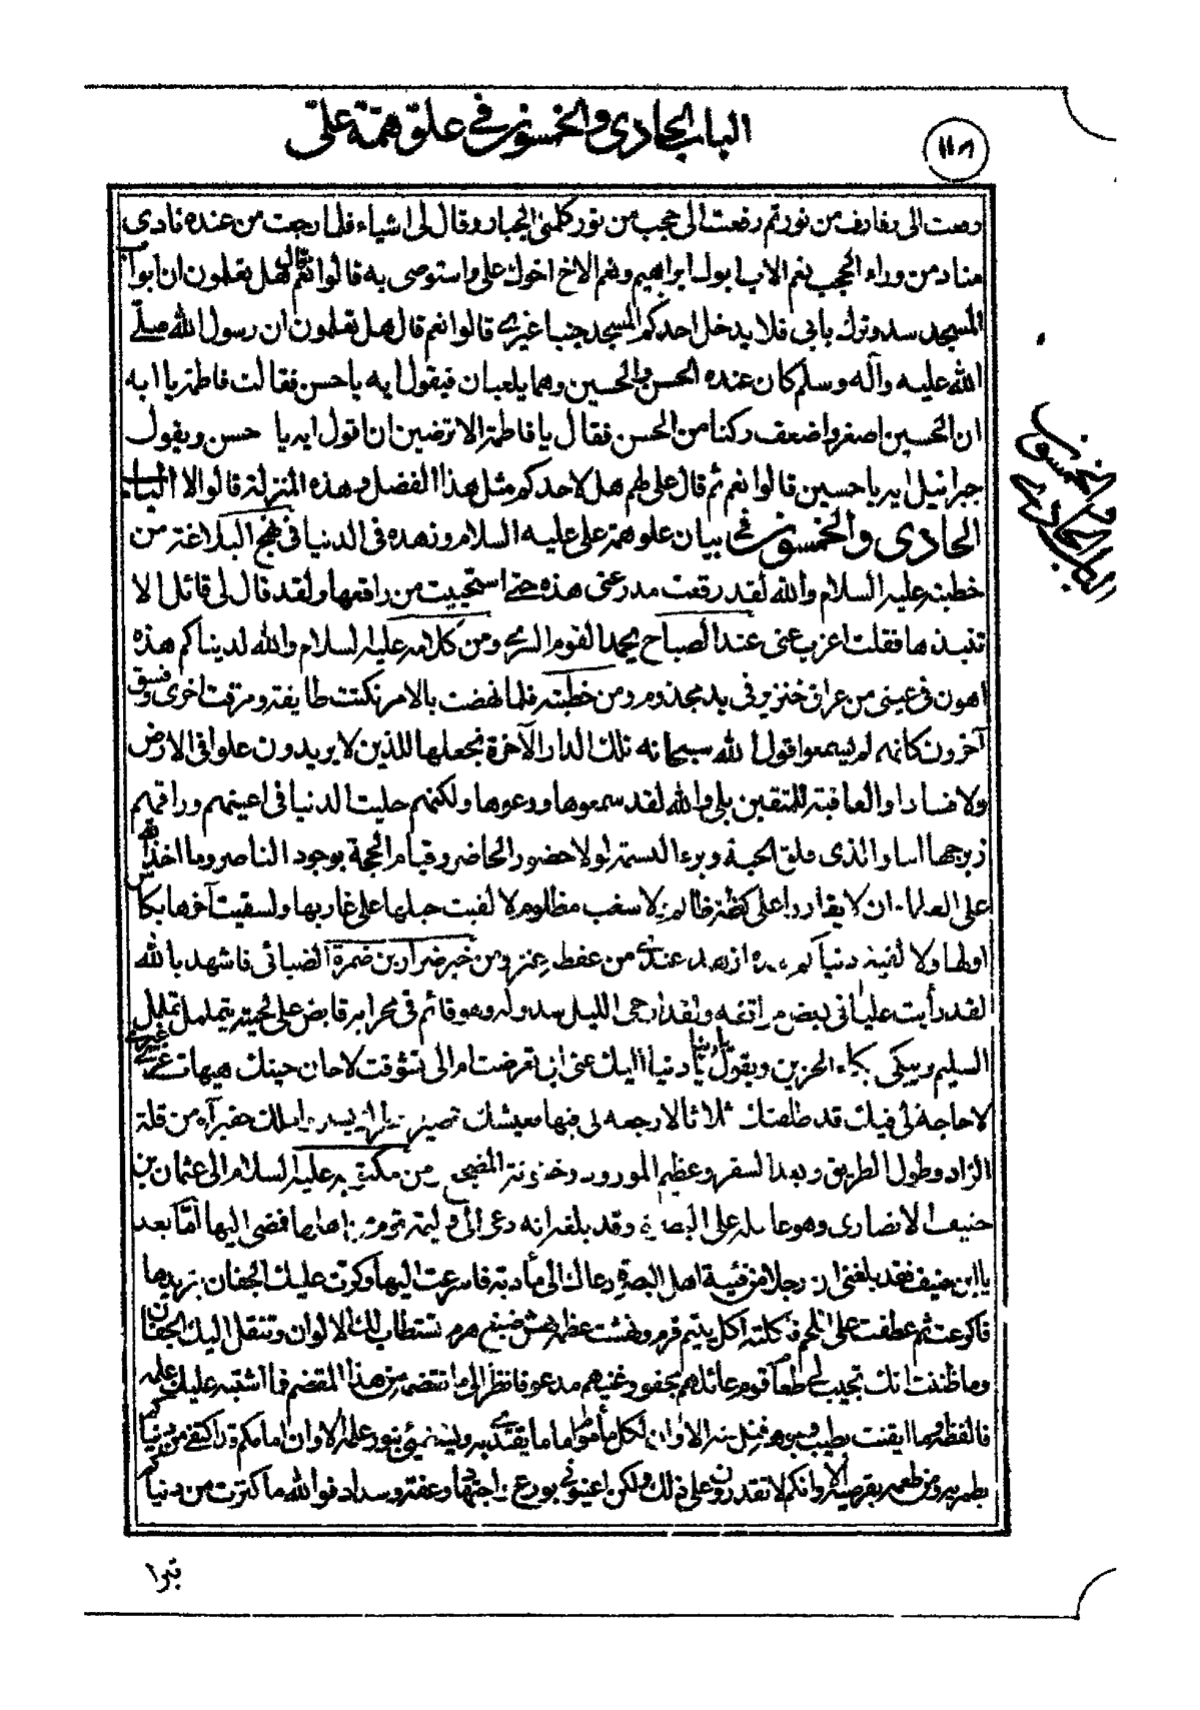 الباب الحادى والخمسون فى علو همة على
رفعت الى رفارف من نور ثم رفعت الى حجب من نور كلمنى الجبار وقال لى اشياء فلما رجعت من عنده نادى
مناد من وراء الحجب نعم الاب ابوك ابراهيم ونعم الاخ اخوك على واستوصى به قالوا نعم قال هل تعلمون ان ابواب
المسجد سد وترك بابى فلا يدخل احدكم المسجد جنبا غيرى قالوا نعم قال هل تعلمون ان رسول الله صلى
الله عليه وآله وسلم كان عنده الحسن والحسين وهما يلعبان فيقول ايه يا حسن فقالت فاطمة يا ابه
ان الحسين اصغر واضعف ركنا من الحسن فقال يا فاطمة الا ترضين ان اقول ايه يا حسن ويقول
جبرائيل ايه يا حسين قالوا نعم ثم قال على لهم هل لاحدكم مثل هذا الفضل وهذه المنزلة قالوا لا الباب
الحادى والخمسون فى بيان علو همة على عليه السلام وزهده فى الدنيا فى نهج البلاغة من
خطبته عليه السلام والله لقد رقعت مدرعتى هذه حتى استحييت من راقعها ولقد قال لى قائل الا
تنبذها فقلت اعزب عنى عند الصباح يحمد القوم السرى ومن كلامه عليه السلام والله لدنياكم هذه
اهون فى عينى من عراق خنزير فى يد مجذوم ومن خطبته فلما نهضت بالامر نكثت طايفة ومرقت اخرى وفسق
آخرون كانه لم يسمعوا قول الله سبحانه تلك الدار الآخرة نجعلها للذين لا يريدون علوا فى الارض
ولا فسادا والعاقبة للمتقين بلى والله لقد سمعوها ووعوها ولكنهم حليت الدنيا فى اعينهم وراقهم
زبرجها اما والذى فلق الحبة وبرء النسمة لولا حضور الحاضر وقيام الحجة بوجود الناصر وما اخذ الله
على العلماء ان لا يقاروا على كظة ظالم ولا سغب مظلوم لالقيت حبلها على غاربها ولسقيت آخرها بكاس
اولها ولا لفيتم دنياكم هذه ازهد عندى من عفطة عنز ومن خبر ضرار بن ضمرة الضبائى فاشهد بالله
لقد رأيت عليا فى بعض مواقفه ولقد ارخى الليل سدوله وهو قائم فى محرابه قابض على لحيته يتململ تململ
السليم ويبكى بكاء الحزين ويقول يا دنيا يا دنيا اليك عنى ابى تعرضت ام الى تشوقت لا حان حينك هيهات غرى غيرى
لا حاجة لى فيك قد طلقتك ثلاثا لا رجعه لى فيها فعيشك قصير وخطرك يسير واملك حقير آه من قلة
الزاد وطول الطريق وبعد السفر وعظيم المورود وخشونة المضجع ومن مكتوبه عليه السلام الى عثمان بن
حنيف الانصارى وهو عامله على البصرة وقد بلغه انه دعى الى وليمة قوم من اهلها فمضى اليها أما بعد
يا ابن حنيف فقد بلغنى ان رجلا من فتية اهل البصرة دعاك الى مأدبة فاسرعت اليها وكرت عليك الجفان
فكرعت ثم عطفت على اللحم فاكلته اكل يتيم قرم ونهشت عظمه نهش ضبع هرم تستطاب لك الالوان وتنقل اليك الجفان
وما ظننت انك تجيب الى طعام قوم عائلهم مجفو وغنيهم مدعو فانظر الى ما تقضمه من هذا المقضم فما اشتبه عليك علمه
فالفظه وما ايقنت بطيب وجوهه فنل منه الا وان لكل مأموم اماما يقتدى به ويستضئ بنور علمه الا وان امامكم قد اكتفى من دنياكم
بطمريه ومن طعمه بقرصيه الا وانكم لا تقدرون على ذلك ولكن اعينونى بورع واجتهاد وعفة وسداد فوالله ما كنزت من دنياكم
تبرا
الباب الحادى والخمسون